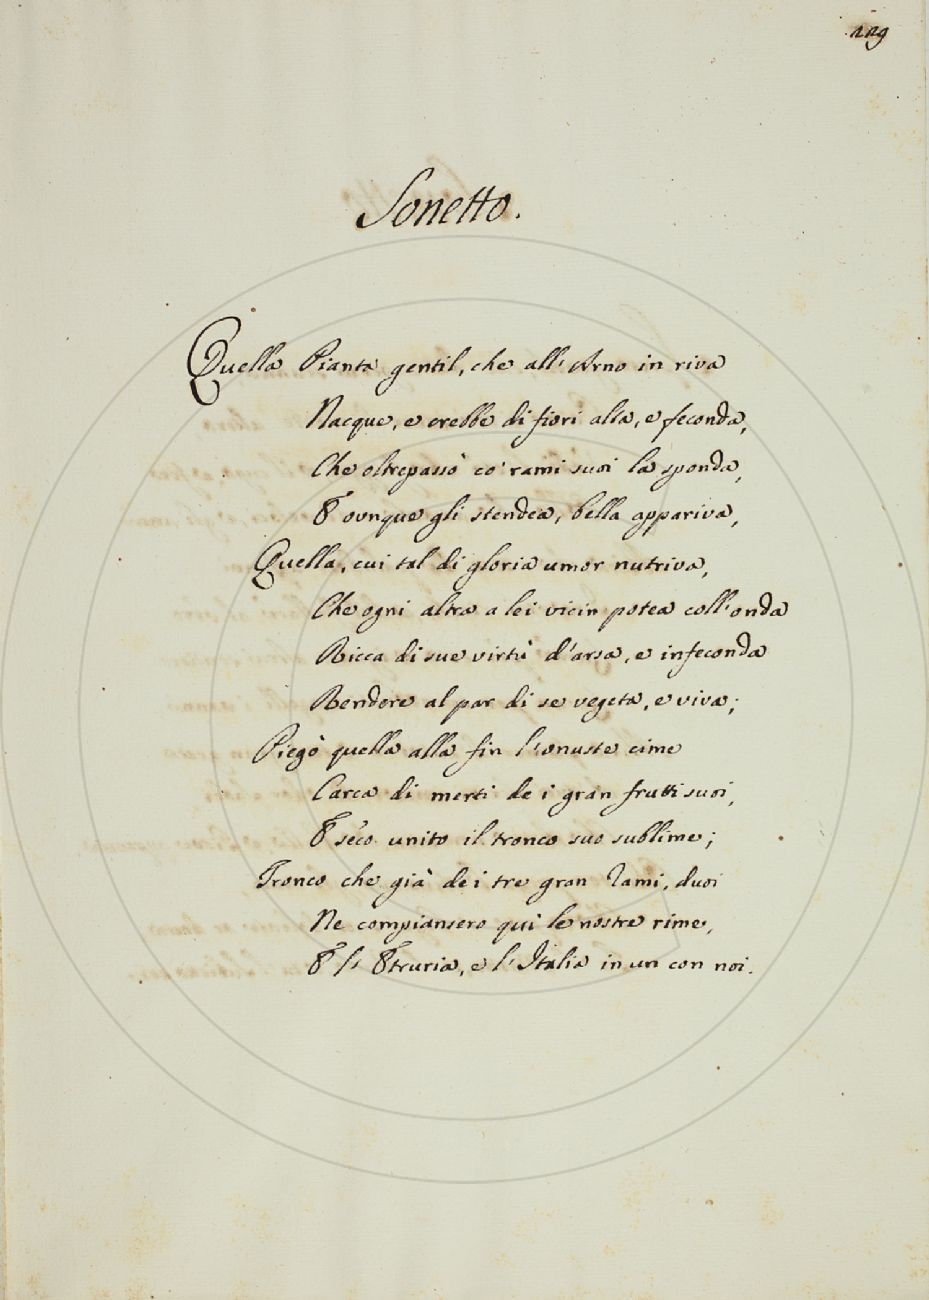 119
Sonetto.
Quella Pianta gentil, che all'Arno in riva
Nacque, e crebbe di fiori alta, e feconda,
Che oltrepassò co' rami suoi la sponda,
E ovunque gli stendea, bella appariva,
Quella, cui tal di gloria umor nutriva,
Che ogni altra a lei vicin potea coll'onda
Ricca di sue virtù d'arsa, e infeconda
Rendere al par di se vegeta, e viva;
Piegò quella alla fin l'onuste cime
Carca di merti de i gran frutti suoi,
E seco unito il tronco suo sublime;
Tronco che già de i tre gran Rami, duoi
Ne compiansero quì le nostre rime,
E l'Etruria, e l'Italia in un con noi.